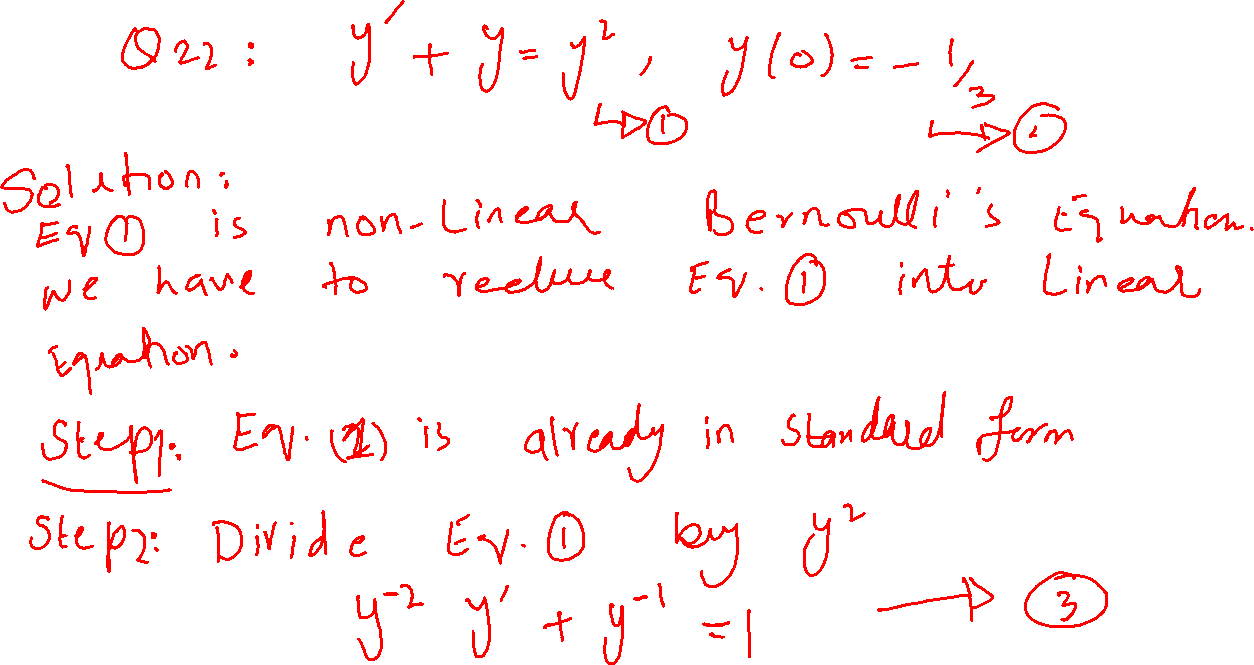 Q22: y′ + y = y², y(0) = -1/3
↳ ① ↳ ②
Solution:
Eq ① is non-Linear Bernoulli's Equation.
we have to reduce Eq. ① into Linear
Equation.
Step1: Eq. (1) is already in standard form
Step2: Divide Eq. ① by y²
y⁻² y′ + y⁻¹ = 1 → ③